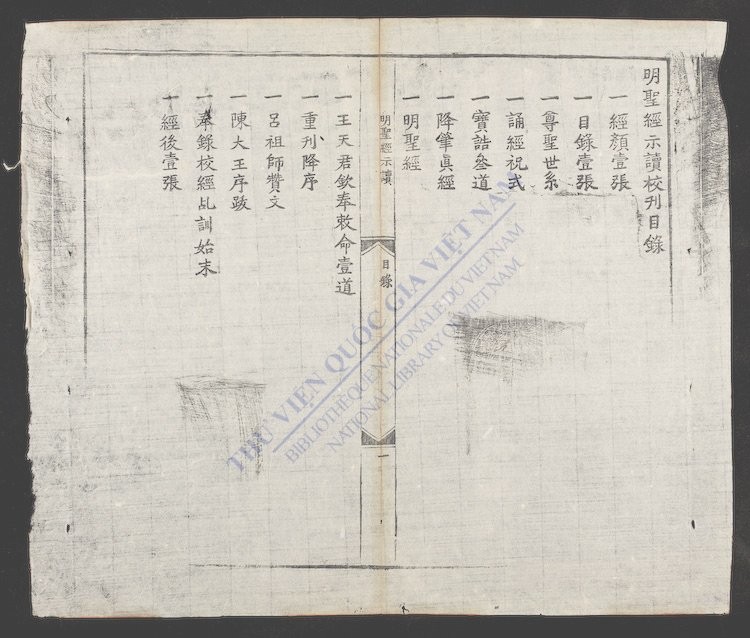 明聖經示讀校刊目錄
一經顏壹張
一目錄壹張
一尊聖世系
一誦經祝式
一寶誥叄道
一降筆眞經
一明聖經
明聖經示讀
目錄
一
一王天君欽奉敕命壹道
一重刋降序
一呂祖師贊文
一陳大王序跋
一奉錄校經乩訓始末
一經後壹張
THƯ VIỆN QUỐC GIA VIỆT NAM
BIBLIOTHÈQUE NATIONALE DU VIETNAM
NATIONAL LIBRARY OF VIETNAM